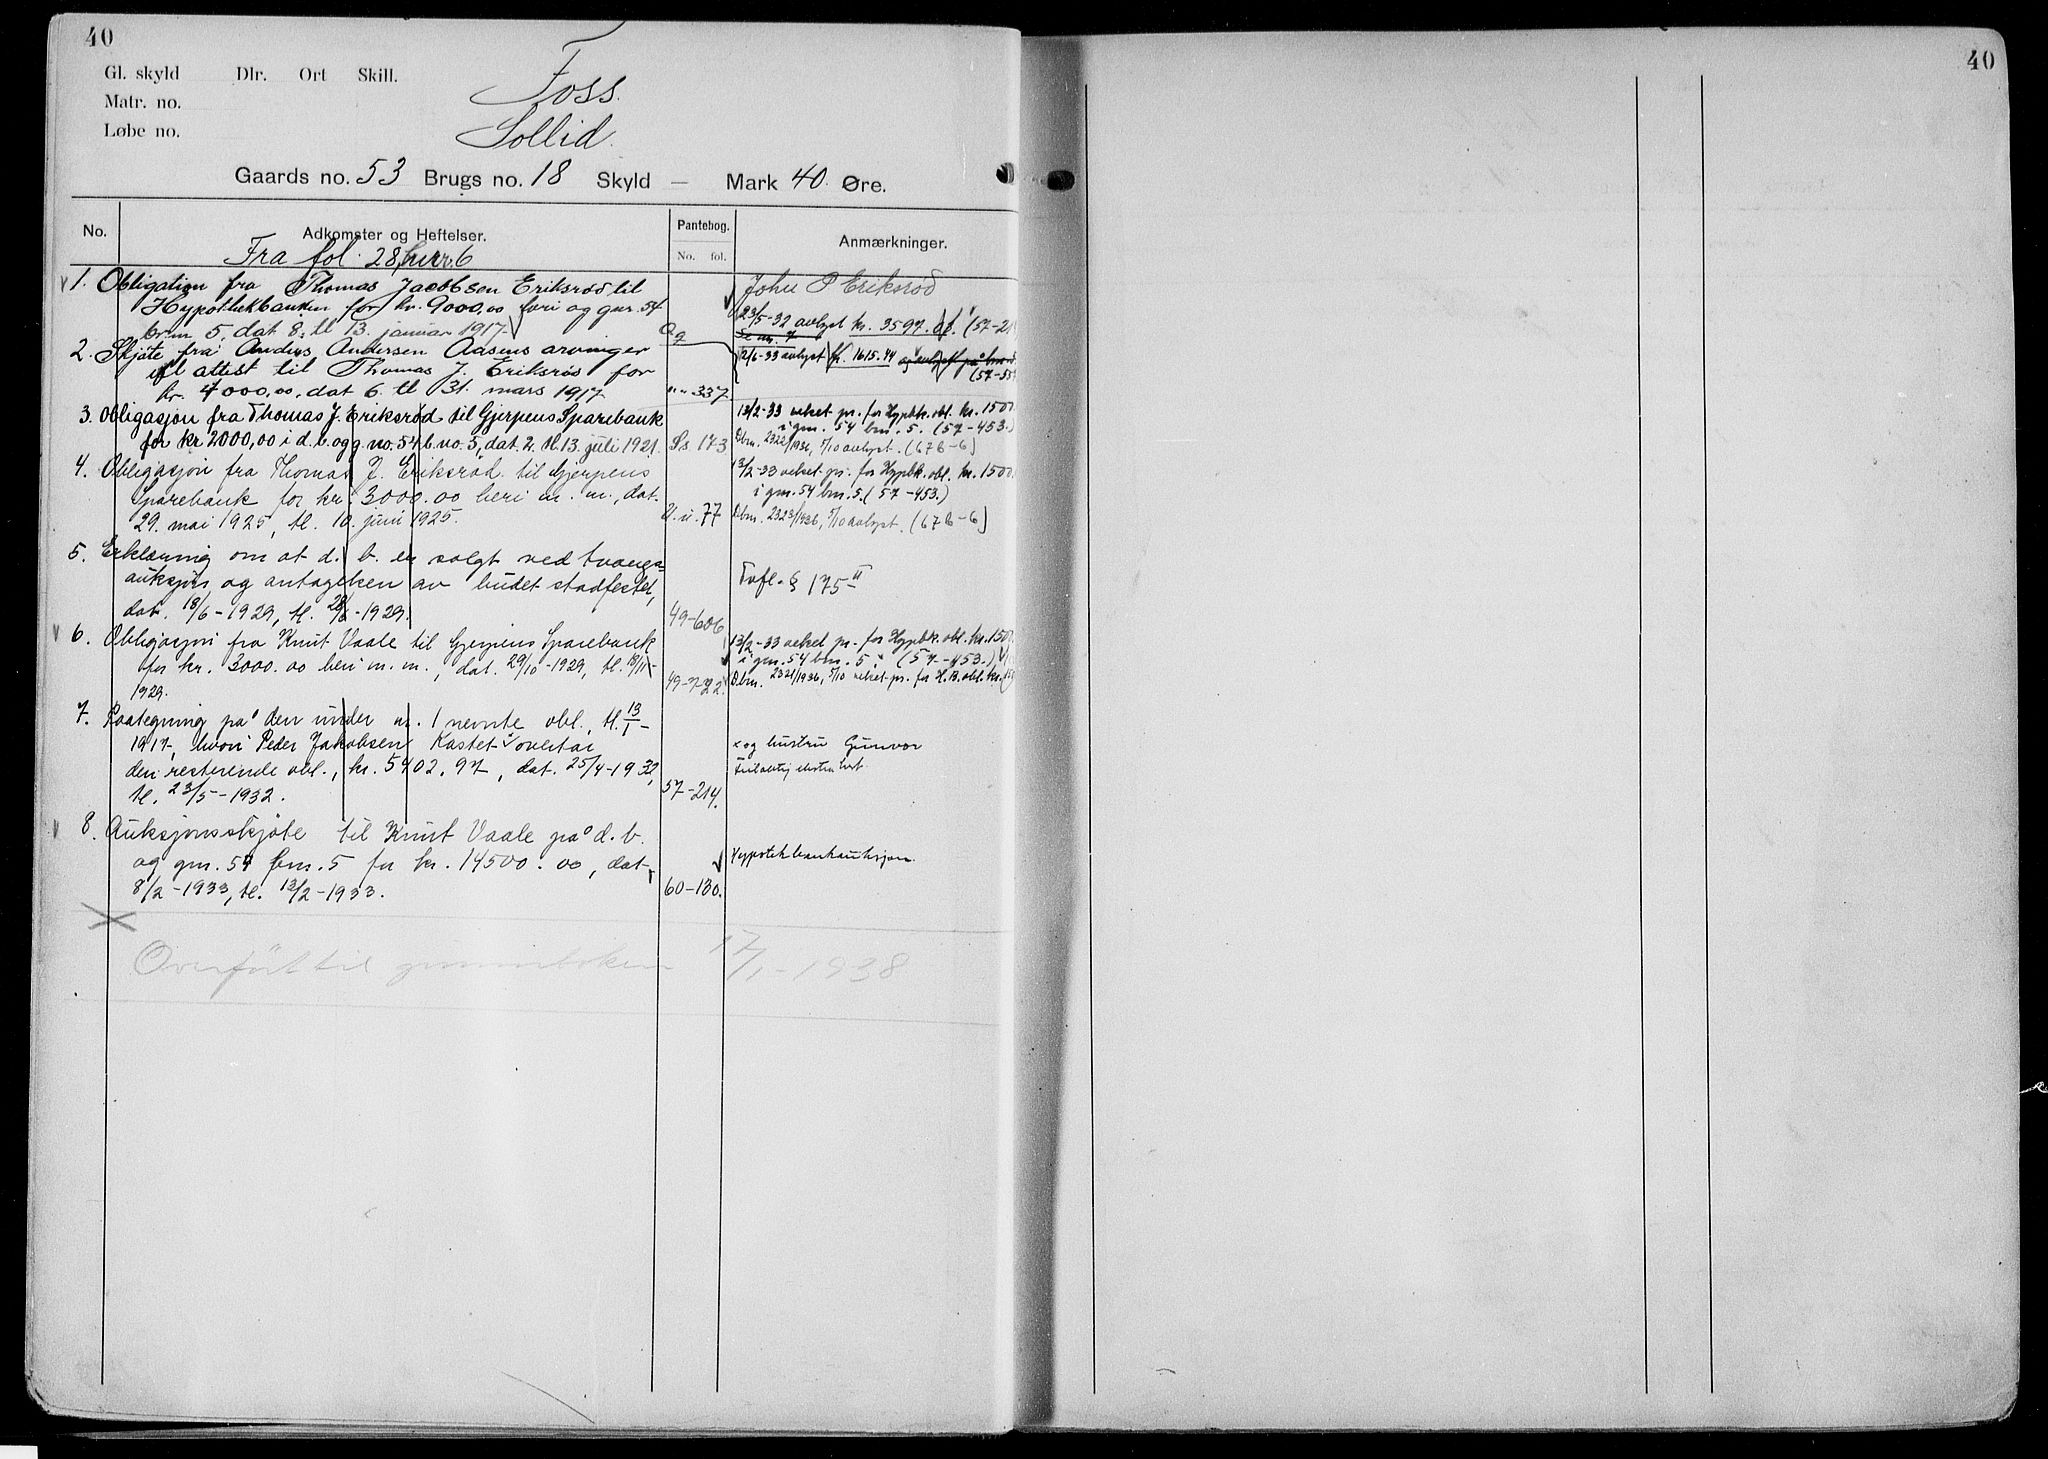 40
Gl. skyld Dlr. Ort Skill.
Foss.
Matr. no.
Løbe no.
Sollid.
Gaards no. 53 Brugs no. 18 Skyld — Mark 40 Øre.
No. Adkomster og Heftelser. Pantebog. No. fol. Anmærkninger.
Fra fol. 28, 6
1. Obligation fra Thomas Jacobsen Eriksrød til
Hypothekbanken for kr. 9000,00 heri og gnr. 54
brn 5, dat 8, tl 13. januar 1917. Qq
John P Eriksrød
23/5-32 avlyst kr. 3597. (57-21
Se nr. 7
2. Skjøte fra Anders Andersen Aasens arvinger
efl attest til Thomas J. Eriksrøs for
kr. 4000,00, dat 6. tl 31. mars 1917 "" 337
12/6-33 avlyst kr. 1615.44
(57-55
3. Obligasjon fra Thomas J. Eriksrød til Gjerpens Sparebank
for kr 2000,00 i d. b. og g. no. 54 b. no. 5, dat. 2. tl. 13. juli 1921. Ss 173
13/2-33 veket pr. for Hypbk. obl. kr. 1500.
i gnr. 54 bnr. 5. (57-453.)
Dbnr. 2322/1936, 5/10 avlyst. (67b-6)
4. Obligasjon fra Thomas J. Eriksrød til Gjerpens
Sparebank for kr. 3000.00 heri m. m., dat.
29. mai 1925, tl. 10. juni 1925. U.u. 77
13/2-33 veket pr. for Hypbk. obl. kr. 1500.
i gnr. 54 bnr. 5. (57-453.)
Dbnr. 2323/1936, 5/10 avlyst. (67b-6)
5. Erklæring om at d. b. er solgt ved tvangs-
auksjon og antagelsen av budet stadfestet,
dat. 18/6-1929, tl. 28/6-1929. 49-606
Tvfl. § 175 II
6. Obligasjon fra Knut Vaale til Gjerpens Sparebank
for kr. 3000.00 heri m. m., dat. 29/10-1929, tl. 18/11-
1929. 49-722.
13/2-33 veket pr. for Hypbk. obl. kr. 1500.
i gnr. 54 bnr. 5. (57-453.)
Dbnr. 2321/1936, 5/10 veket pr. for H.B. obl. kr.
7. Paategning på den under nr. 1 nevnte obl., tl. 13/1-
1917, hvori Peder Jakobsen Kastet x overtar
den resterende obl., kr. 5402.97, dat. 25/4-1932,
tl. 23/5-1932. 57-214.
x og hustru Gunvor
8. Auksjonsskjøte til Knut Vaale på d. b.
og gnr. 54 bnr. 5 for kr. 14500.00, dat.
8/2-1933, tl. 13/2-1933. 60-130.
Hypotekbankauksjon.
Overført til grunnboken 17/1-1938
40